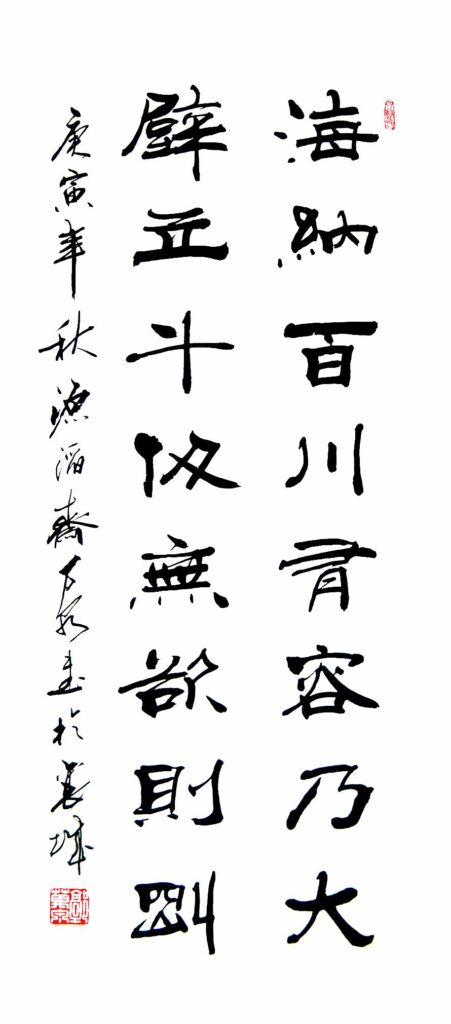 海納百川有容乃大
壁立千仞無欲則剛
庚寅年秋齋書於襄城